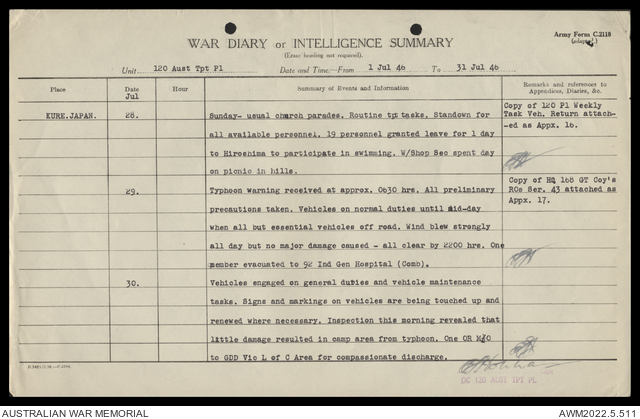 Army Form C.2118
(adapted).
WAR DIARY or INTELLIGENCE SUMMARY
(Erase heading not required).
Unit 120 Aust Tpt Pl Date and Time—From 1 Jul 46 To 31 Jul 46
Place Date Hour Summary of Events and Information Remarks and references to Appendices, Diaries, &c.
Jul
KURE.JAPAN. 28. Sunday- usual church parades. Routine tpt tasks. Standown for
all available personnel. 19 personnel granted leave for 1 day
to Hiroshima to participate in swimming. W/Shop Sec spent day
on picnic in hills.
Copy of 120 Pl Weekly
Task Veh. Return attach-
-ed as Appx. 16.
29. Typhoon warning received at approx. 0630 hrs. All preliminary
precautions taken. Vehicles on normal duties until mid-day
when all but essential vehicles off road. Wind blew strongly
all day but no major damage caused - all clear by 2200 hrs. One
member evacuated to 92 Ind Gen Hospital (Comb).
Copy of HQ 168 GT Coy's
ROs Ser. 43 attached as
Appx. 17.
30. Vehicles engaged on general duties and vehicle maintenance
tasks. Signs and markings on vehicles are being touched up and
renewed where necessary. Inspection this morning revealed that
little damage resulted in camp area from typhoon. One OR M/O
to GDD Vic L of C Area for compassionate discharge.
OC 120 AUST TPT PL
AUSTRALIAN WAR MEMORIAL
AWM2022.5.511